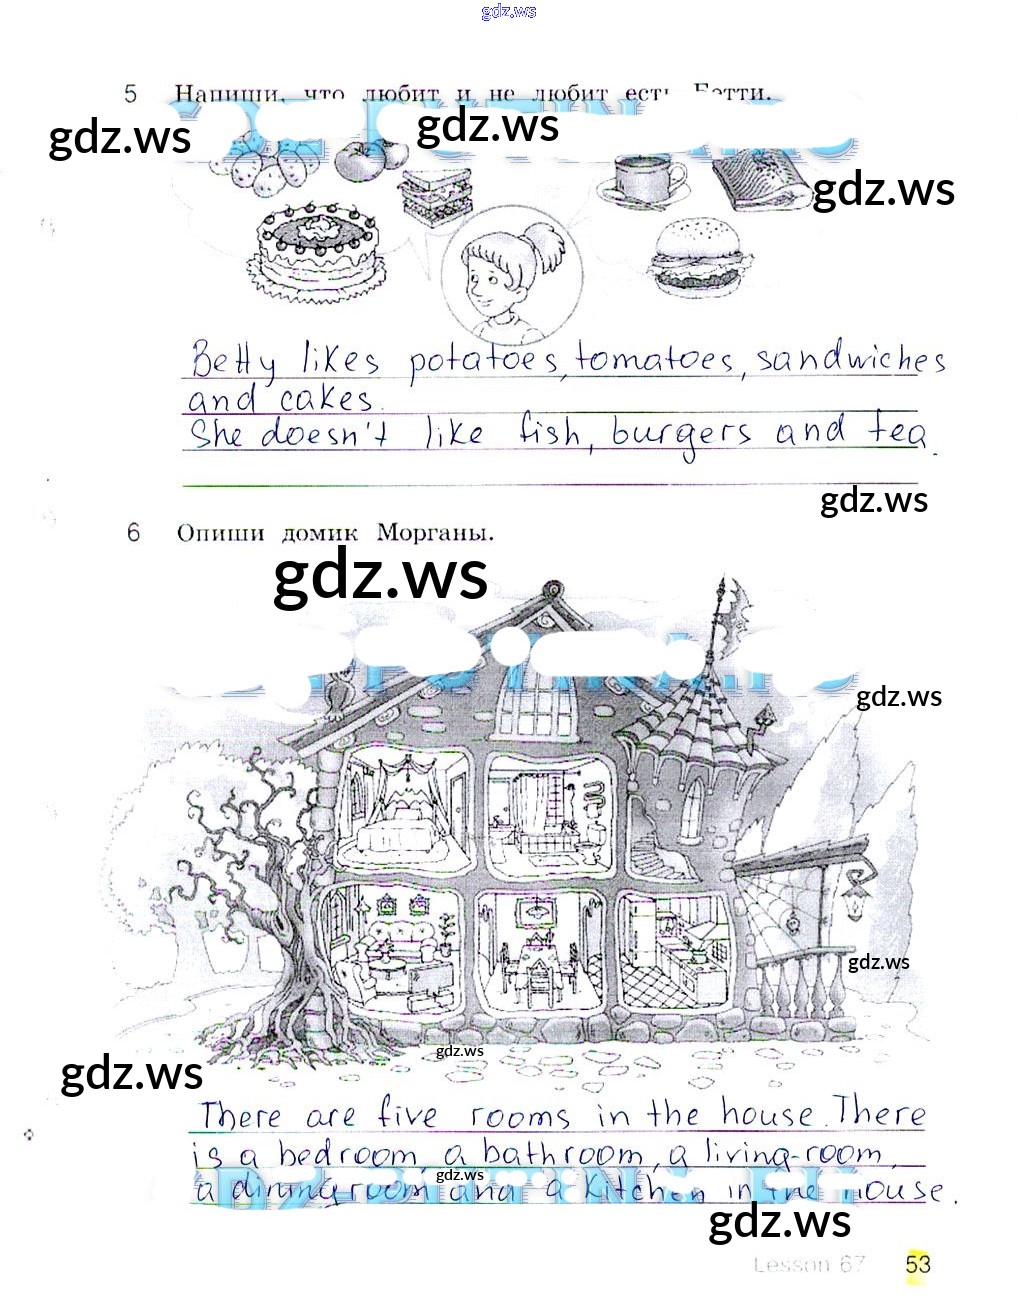 gdz.ws
5 Напиши, что любит и не любит есть Бетти.
gdz.ws
gdz.ws
gdz.ws
Betty likes potatoes, tomatoes, sandwiches
and cakes.
She doesn't like fish, burgers and tea.
gdz.ws
6 Опиши домик Морганы.
gdz.ws
gdz.ws
gdz.ws
gdz.ws
gdz.ws
There are five rooms in the house. There
is a bedroom, a bathroom, a living-room,
gdz.ws
a dining room and a kitchen in the house.
gdz.ws
Lesson 67 53